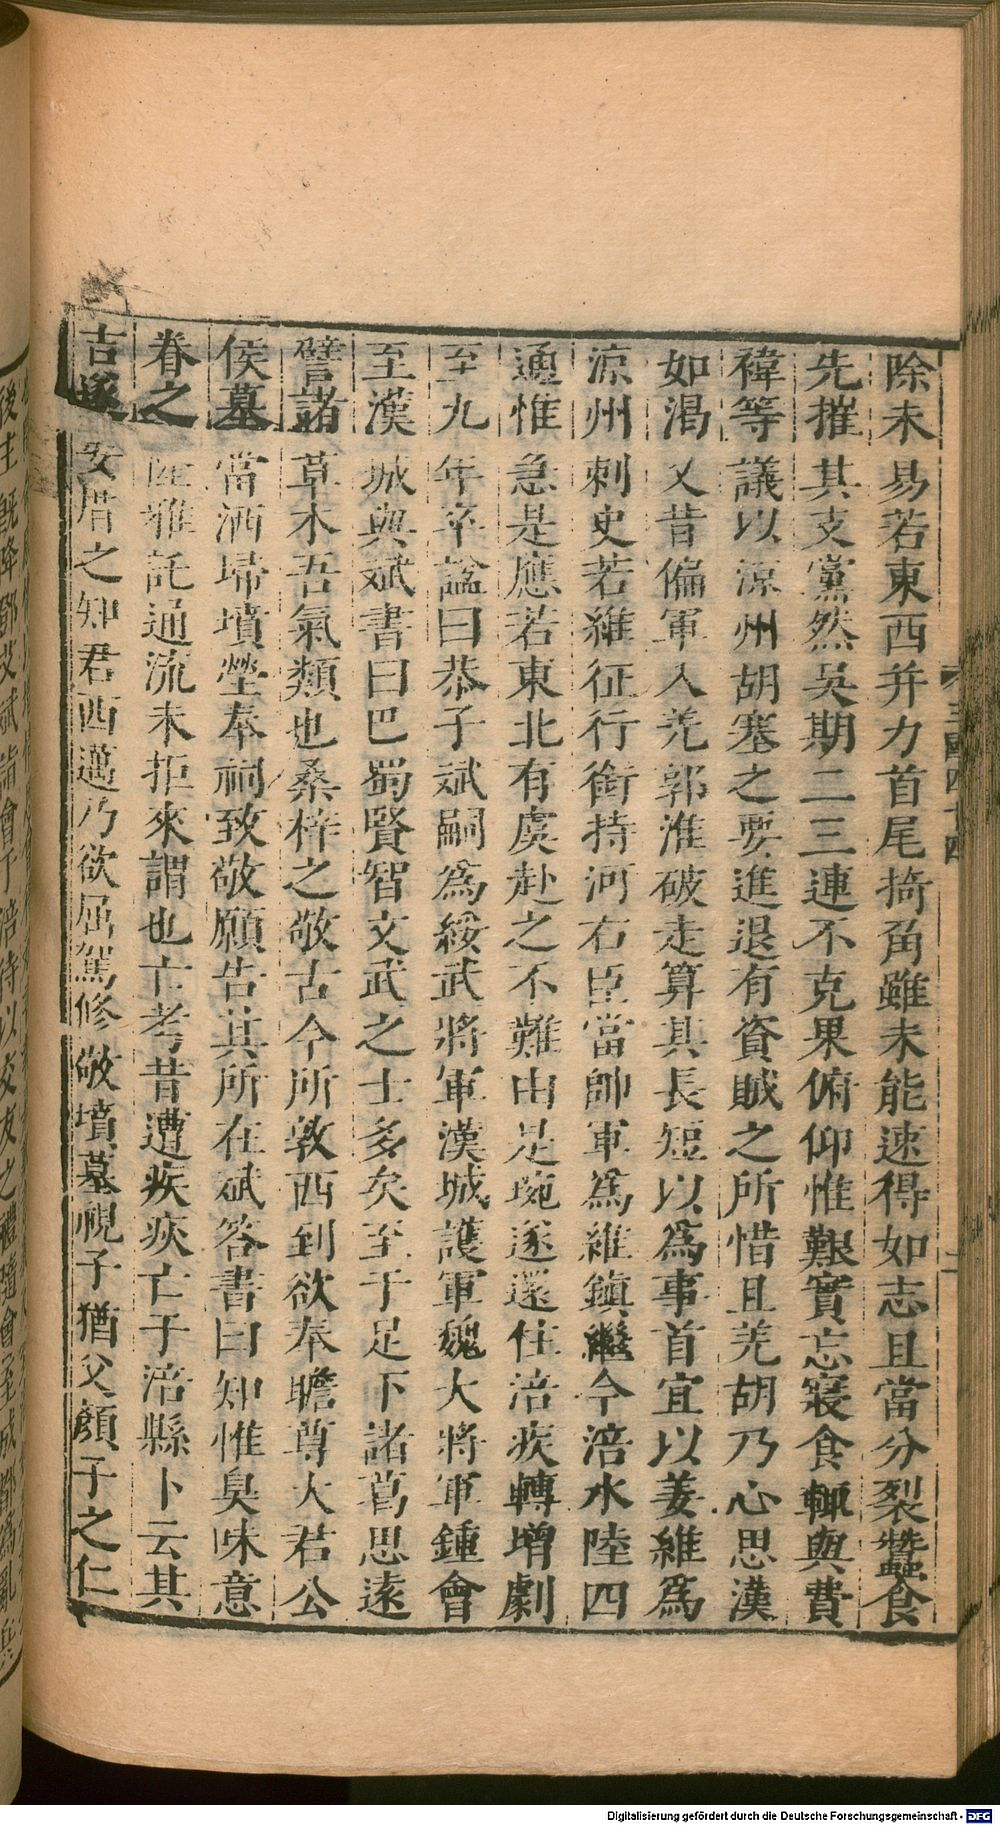 除未易若東西并力首尾掎角雖未能速得如志且當分裂蠶食
先摧其支黨然吳期二三連不克果俯仰惟艱實忘寢食輒與費
禕等議以涼州胡塞之要進退有資賊之所惜且羌胡乃心思漢
如渴又昔偏軍入羌郭淮破走算其長短以爲事首宜以姜維爲
涼州刺史若維征行銜持河右臣當帥軍爲維鎮繼今涪水陸四
通惟急是應若東北有虞赴之不難由是琬遂還住涪疾轉增劇
至九年卒諡曰恭子斌嗣爲綏武將軍漢城護軍魏大將軍鍾會
至漢城與斌書曰巴蜀賢智文武之士多矣至于足下諸葛思遠
譬諸草木吾氣類也桑梓之敬古今所敦西到欲奉瞻尊大君公
侯墓當洒埽墳塋奉祠致敬願告其所在斌答書曰知惟臭味意
眷之隆雅託通流未拒來謂也亡考昔遭疾疢亡于涪縣卜云其
吉遂安厝之知君西邁乃欲屈駕修敬墳墓視予猶父顏子之仁
三國四十四
Digitalisierung gefördert durch die Deutsche Forschungsgemeinschaft - DFG